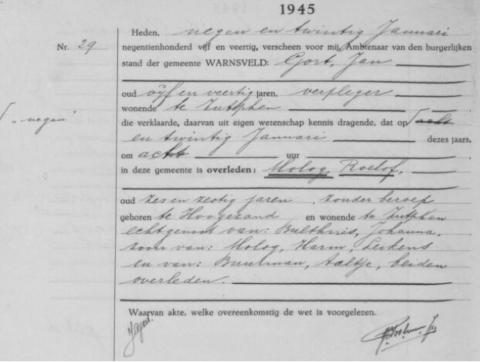 1945
Nr. 29
Heden, negen en twintig Januari
negentienhonderd vijf en veertig, verscheen voor mij, Ambtenaar van den burgerlijken
stand der gemeente WARNSVELD: Gort, Jan
oud vijf en veertig jaren, verpleger
wonende te Zutphen
die verklaarde, daarvan uit eigen wetenschap kennis dragende, dat op acht
"negen"
en twintig Januari dezes jaars,
om acht uur
in deze gemeente is overleden: Molog, Roelof,
oud zes en zestig jaren, zonder beroep
geboren te Hoogezand en wonende te Zutphen
echtgenoot van: Bulthuis, Johanna,
zoon van: Molog, Harm,
en van: Buurman, Aaltje, beiden
overleden.
Waarvan akte, welke overeenkomstig de wet is voorgelezen.